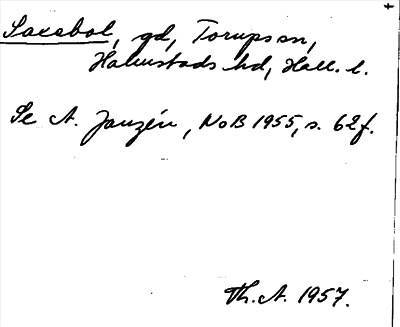 Saxebol, gd, Torups sn,
Halmstads hd, Hall. l.
Se A. Janzén, NoB 1955, s. 62 f.
Th. A. 1957.